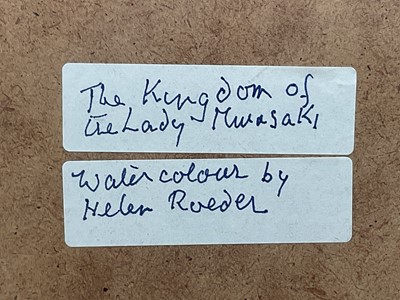 The Kingdom of
the Lady Murasaki
Watercolour by
Helen Roeder